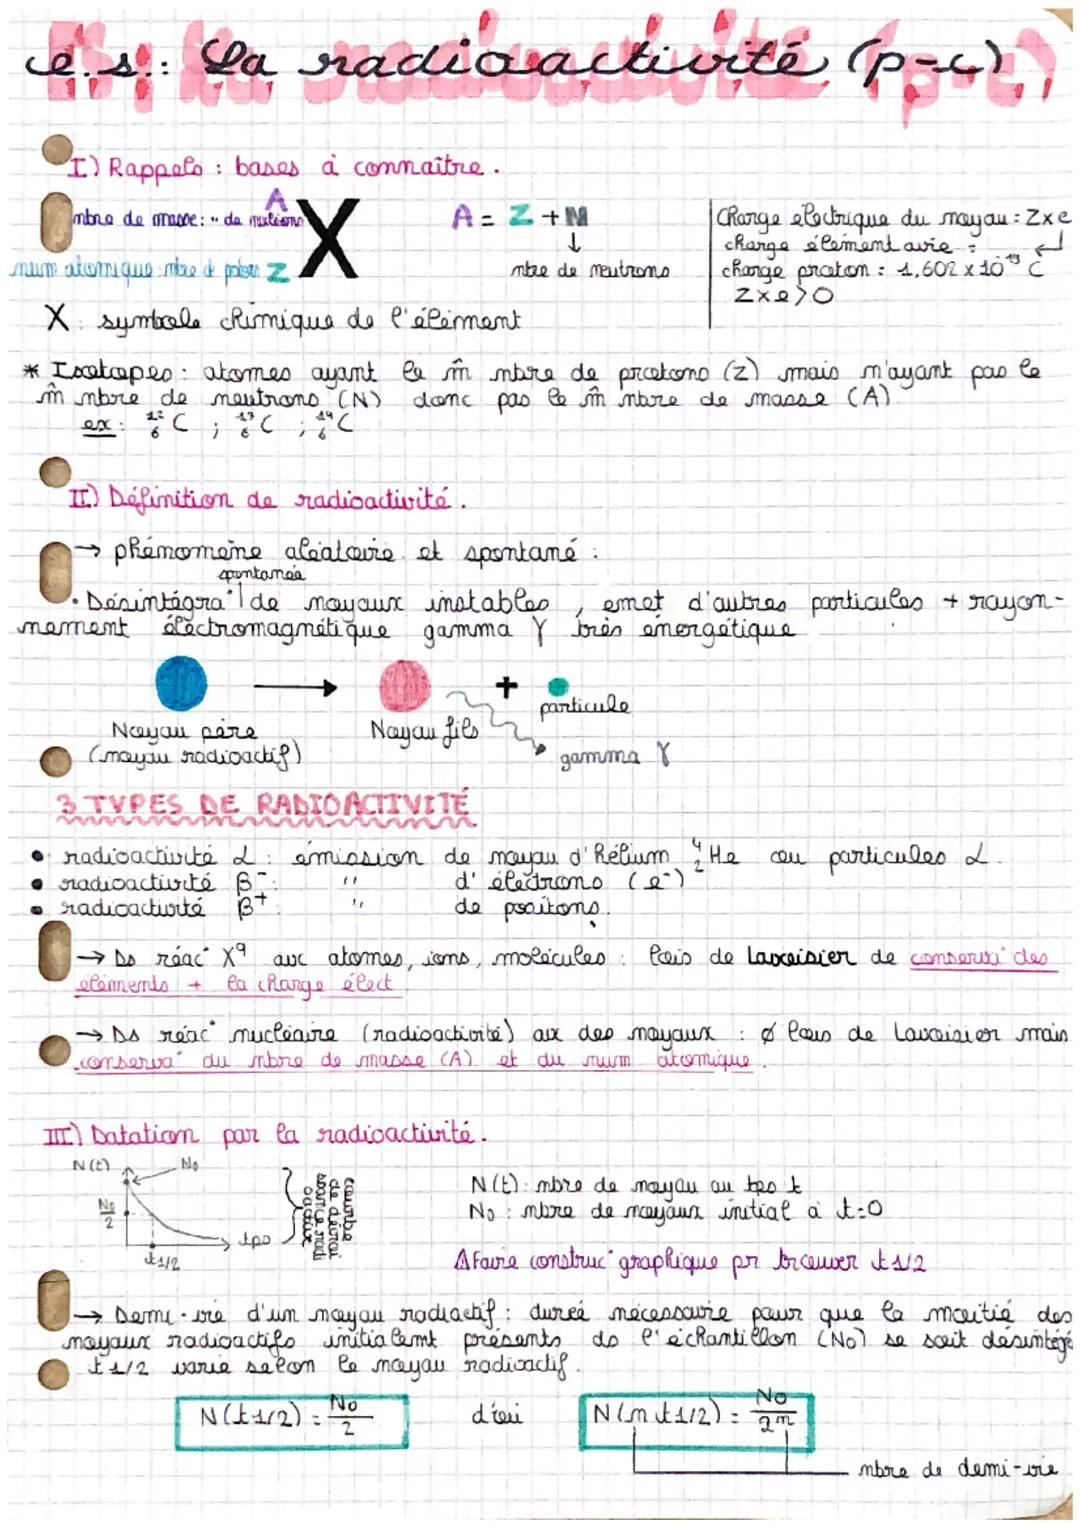 e.s.: La radioactivité (p-c)
I) Rappels : bases à connaître.
nbre de masse: " de nucléons A X
num atomique: nbre de protons Z
A = Z + N
↓
nbre de neutrons
Charge électrique du noyau : Z x e
charge élémentaire =
charge proton : 1,602 x 10⁻¹⁹ C
Z x e > 0
X : symbole chimique de l'élément
* Isotopes : atomes ayant le m̂ nbre de protons (Z) mais n'ayant pas le
m̂ nbre de neutrons (N) donc pas le m̂ nbre de masse (A)
ex : ¹²₆C ; ¹³₆C ; ¹⁴₆C
II) Définition de radioactivité.
→ phénomène aléatoire et spontané :
spontanée
• Désintégra° de noyaux instables, émet d'autres particules + rayon-
nement électromagnétique gamma γ très énergétique
+
particule
Noyau père
(noyau radioactif)
Noyau fils
gamma γ
3 TYPES DE RADIOACTIVITÉ
• radioactivité α : émission de noyau d'hélium ⁴₂He ou particules α.
• radioactivité β⁻ : " d'électrons (e⁻)
• radioactivité β⁺ : " de positons.
→ Ds réac° Xq avc atomes, ions, molécules : lois de Lavoisier de conserva° des
éléments + la charge élect
→ Ds réac° nucléaire (radioactivité) avc des noyaux : ø lois de Lavoisier mais
conserva° du nbre de masse (A) et du num atomique.
III) Datation par la radioactivité.
N(t)
N₀
N₀/2
t1/2
tps
courbe de décroissance radioactive
N(t) : nbre de noyau au tps t
N₀ : nbre de noyaux initial à t=0
⚠ Faire construc° graphique pr trouver t1/2
→ Demi-vie d'un noyau radiactif : durée nécessaire pour que la moitié des
noyaux radioactifs initialemt présents ds l'échantillon (N₀) se soit désintégé
t1/2 varie selon le noyau radioactif.
N(t1/2) = N₀/2
d'où
N(n t1/2) = N₀/2ⁿ
nbre de demi-vie